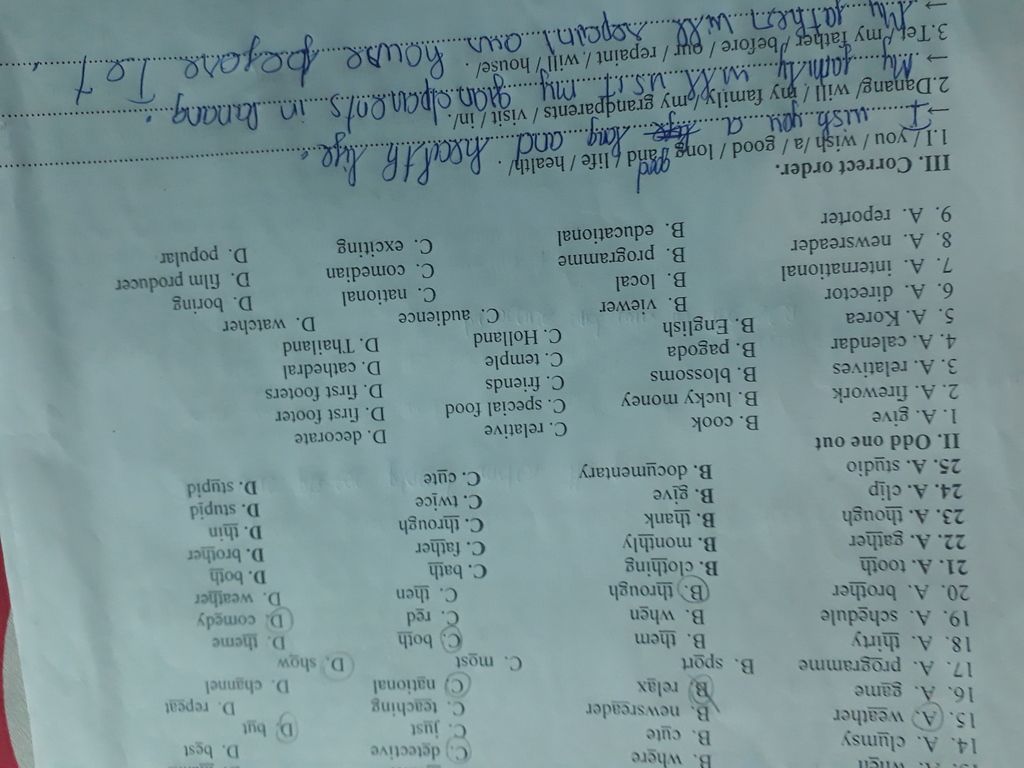 13. A. when B. where C. detective D. best
14. A. clumsy B. cute C. just D. but
15. A. weather B. newsreader C. teaching D. repeat
16. A. game B. relax C. national D. channel
17. A. programme B. sport C. most D. show
18. A. thirty B. them C. both D. theme
19. A. schedule B. when C. red D. comedy
20. A. brother B. through C. then D. weather
21. A. tooth B. clothing C. bath D. both
22. A. gather B. monthly C. father D. brother
23. A. though B. thank C. through D. thin
24. A. clip B. give C. twice D. stupid
25. A. studio B. documentary C. cute D. stupid
II. Odd one out
1. A. give B. cook C. relative D. decorate
2. A. firework B. lucky money C. special food D. first footer
3. A. relatives B. blossoms C. friends D. first footers
4. A. calendar B. pagoda C. temple D. cathedral
5. A. Korea B. English C. Holland D. Thailand
6. A. director B. viewer C. audience D. watcher
7. A. international B. local C. national D. boring
8. A. newsreader B. programme C. comedian D. film producer
9. A. reporter B. educational C. exciting D. popular
III. Correct order.
1.I / you / wish /a / good / long /and / life / health/ .
good
→ I wish you a long and health life.
2.Danang/ will / my family/my grangparents / visit / in/.
→ My family will visit my grandparents in Danang.
3.Tet/ my father /before / our / repaint / will / house/ .
→ My father will repaint our house before Tet.